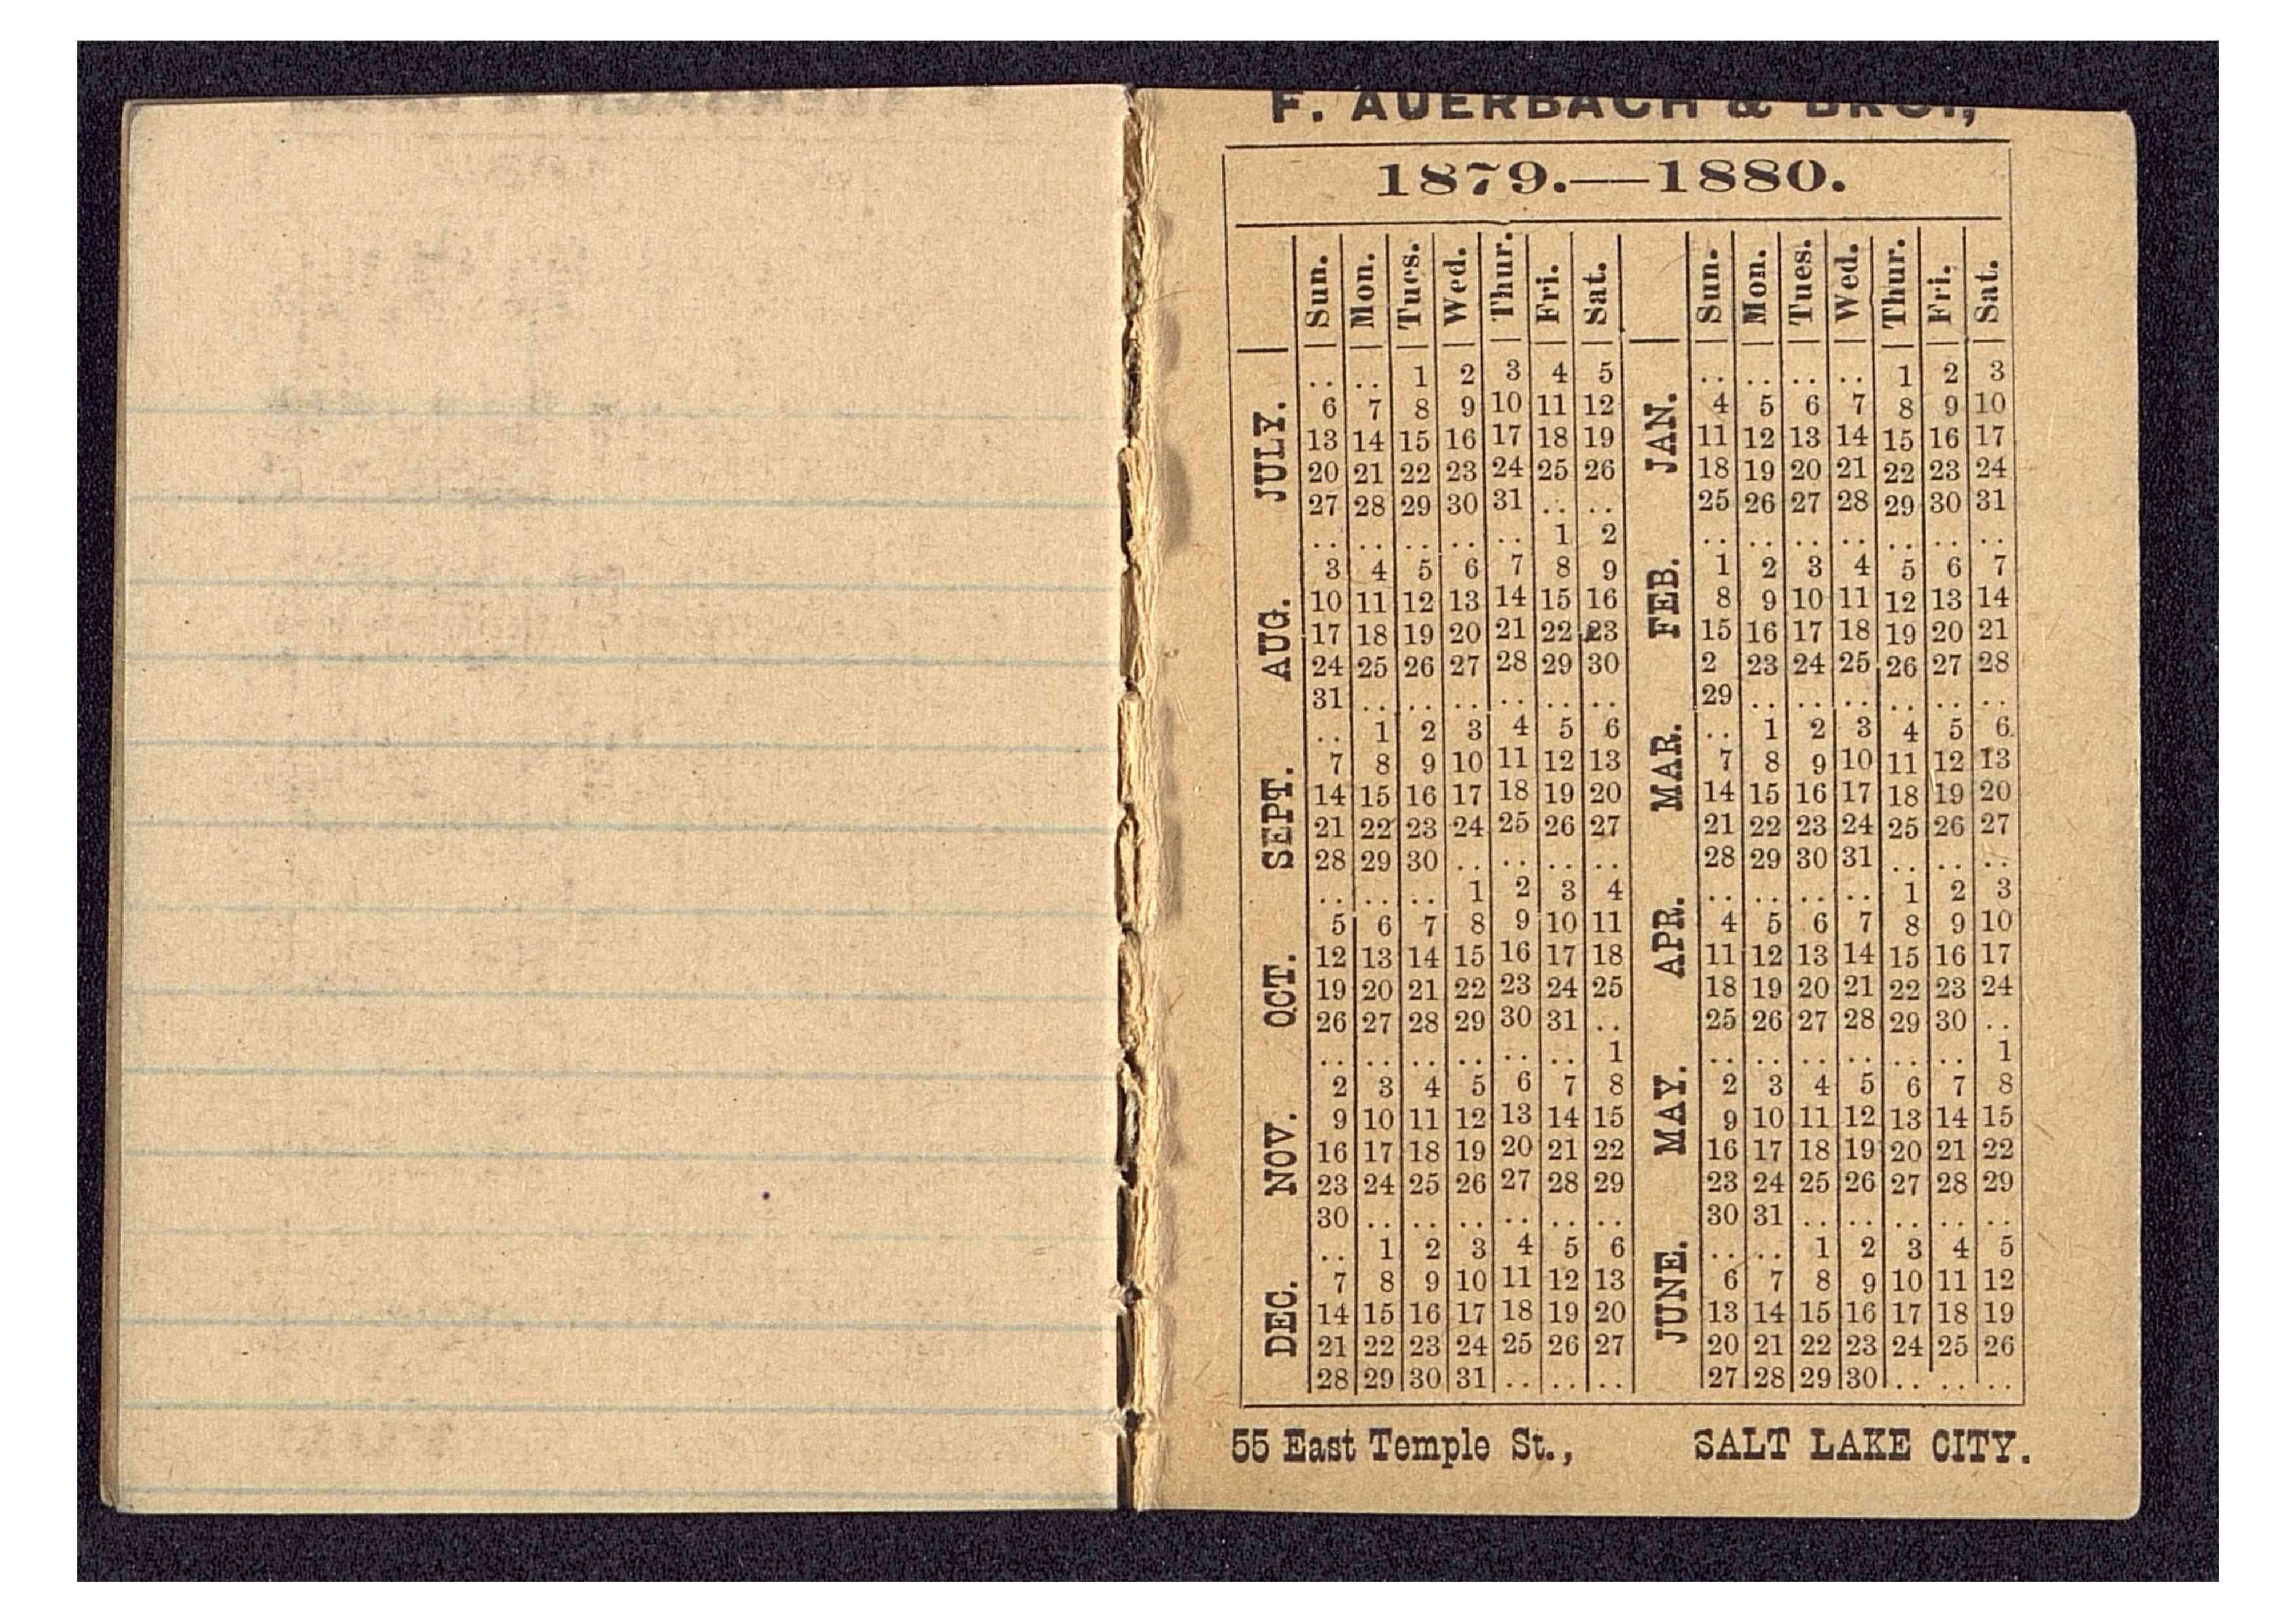 F. AUERBACH & BRO.,
1879.—1880.
Sun. Mon. Tues. Wed. Thur. Fri. Sat.
JULY.
.. .. 1 2 3 4 5
6 7 8 9 10 11 12
13 14 15 16 17 18 19
20 21 22 23 24 25 26
27 28 29 30 31 .. ..
AUG.
.. .. .. .. .. 1 2
3 4 5 6 7 8 9
10 11 12 13 14 15 16
17 18 19 20 21 22 23
24 25 26 27 28 29 30
31 .. .. .. .. .. ..
SEPT.
.. 1 2 3 4 5 6
7 8 9 10 11 12 13
14 15 16 17 18 19 20
21 22 23 24 25 26 27
28 29 30 .. .. .. ..
OCT.
.. .. .. 1 2 3 4
5 6 7 8 9 10 11
12 13 14 15 16 17 18
19 20 21 22 23 24 25
26 27 28 29 30 31 ..
NOV.
.. .. .. .. .. .. 1
2 3 4 5 6 7 8
9 10 11 12 13 14 15
16 17 18 19 20 21 22
23 24 25 26 27 28 29
30 .. .. .. .. .. ..
DEC.
.. 1 2 3 4 5 6
7 8 9 10 11 12 13
14 15 16 17 18 19 20
21 22 23 24 25 26 27
28 29 30 31 .. .. ..
Sun. Mon. Tues. Wed. Thur. Fri. Sat.
JAN.
.. .. .. .. 1 2 3
4 5 6 7 8 9 10
11 12 13 14 15 16 17
18 19 20 21 22 23 24
25 26 27 28 29 30 31
FEB.
.. .. .. .. .. .. ..
1 2 3 4 5 6 7
8 9 10 11 12 13 14
15 16 17 18 19 20 21
2 23 24 25 26 27 28
29 .. .. .. .. .. ..
MAR.
.. 1 2 3 4 5 6
7 8 9 10 11 12 13
14 15 16 17 18 19 20
21 22 23 24 25 26 27
28 29 30 31 .. .. ..
APR.
.. .. .. .. 1 2 3
4 5 6 7 8 9 10
11 12 13 14 15 16 17
18 19 20 21 22 23 24
25 26 27 28 29 30 ..
MAY.
.. .. .. .. .. .. 1
2 3 4 5 6 7 8
9 10 11 12 13 14 15
16 17 18 19 20 21 22
23 24 25 26 27 28 29
30 31 .. .. .. .. ..
JUNE.
.. .. 1 2 3 4 5
6 7 8 9 10 11 12
13 14 15 16 17 18 19
20 21 22 23 24 25 26
27 28 29 30 .. .. ..
55 East Temple St., SALT LAKE CITY.